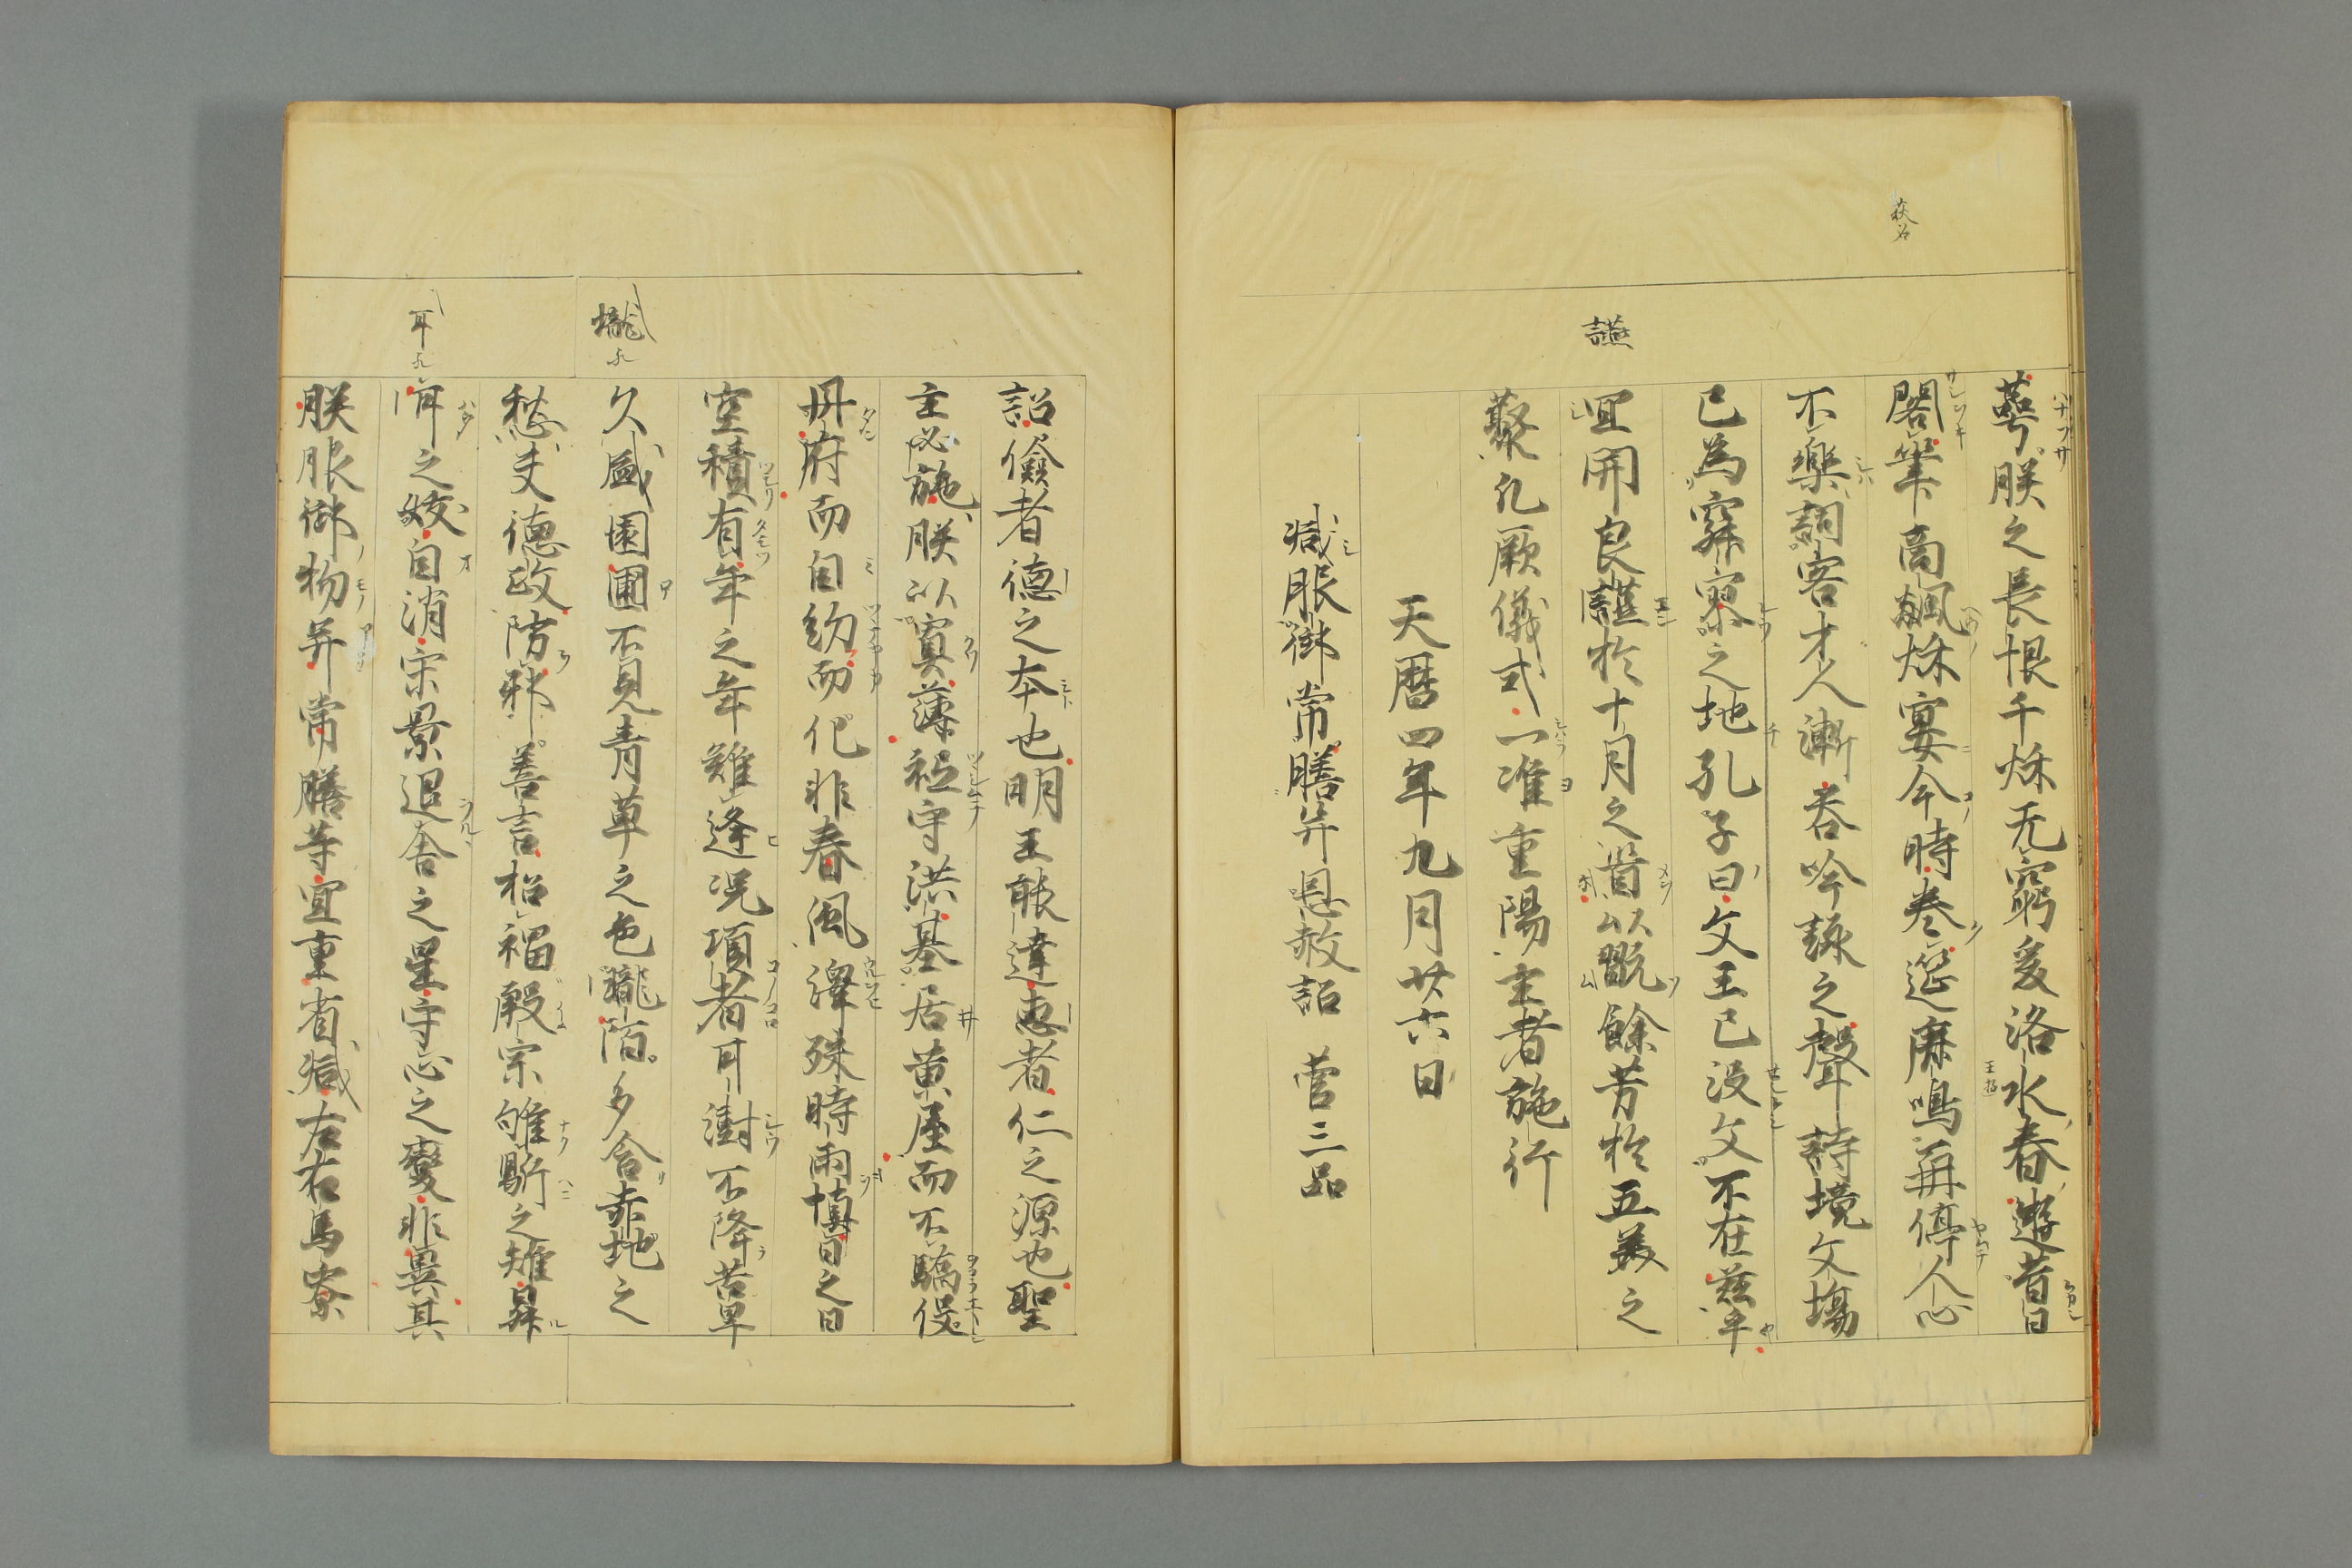 萼朕之長恨千秌无窮爰洛水春遊昔日
閣筆商飆秌宴今時巻筵鹿鳴再停人心
不樂詞客才人漸呑吟詠之聲詩境文塲
已為寂寥之地孔子曰文王已没文不在茲乎
宜開良讌於十月之首以翫餘芳於五美之
藂凡厥儀式一准重陽主者施行
天曆四年九月廿六日
減服御常膳并恩赦詔 菅三品
詔儉者德之本也明王能達惠者仁之源也聖
主必施朕以寡薄祗守洪基居黄屋而不驕倪
丹府而自約而化非春風澤殊時雨慎日之日
空積有年之年難逢况項者耳澍不降苦旱
久盛園圃不見青草之色朧陌多含赤地之
愁夫德政防邪善言招福殷宗雊鼎之雉昇
耳之妖自消宋景退舍之星守心之變非異其
朕服御物并常膳等宜重省減左右馬寮
讌
壠
耳